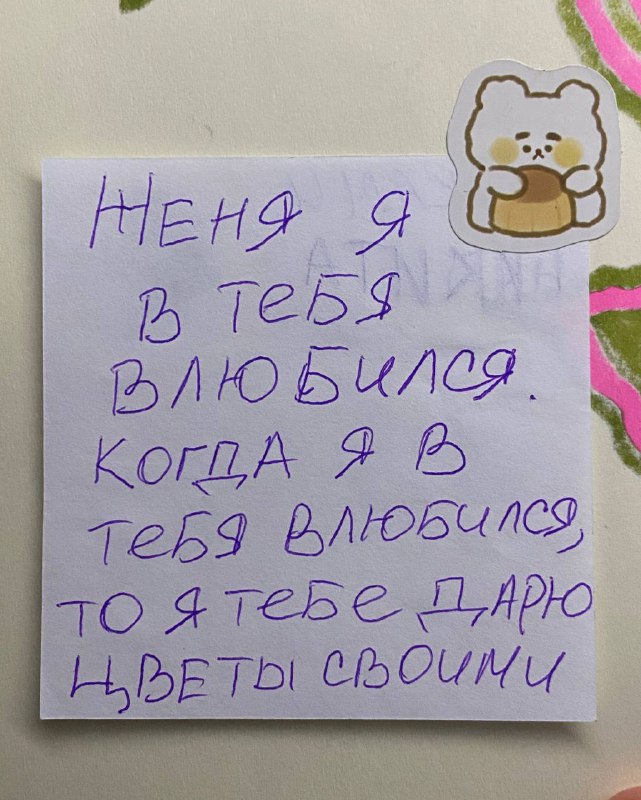 ЖЕНЯ Я
В ТЕБЯ
ВЛЮБИЛСЯ.
КОГДА Я В
ТЕБЯ ВЛЮБИЛСЯ,
ТО Я ТЕБЕ ДАРЮ
ЦВЕТЫ СВОИМИ